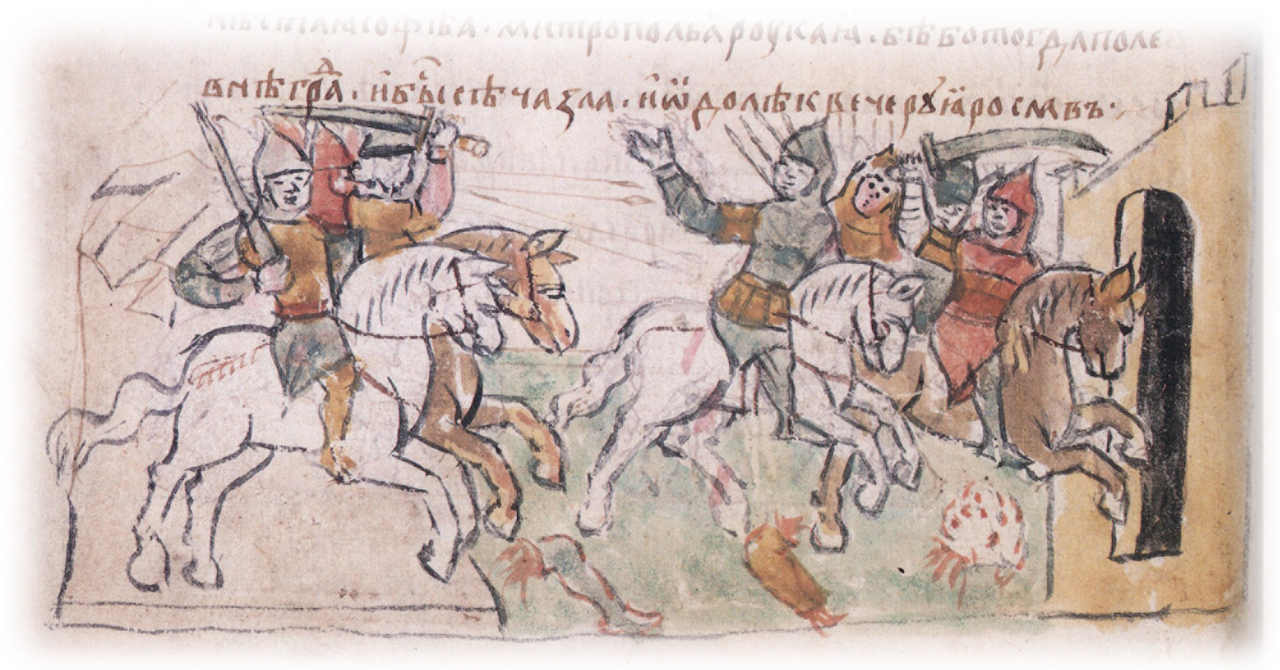 нѣ стаꙗ софѣꙗ · митропольꙗ роускаꙗ · бѣ бо тогда поле
внѣ грⷣа · и бⷭ҇ы сѣча зла · и ѿдолѣ к вечерꙋ ꙗрославъ ·